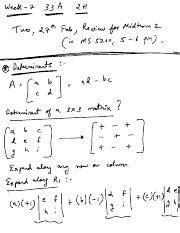 Week-7 33A 2H
Tue, 27th Feb, Review for Midterm 2
(in MS 5200, 5-6 pm).
Determinants :-
A = [a b; c d] = ad - bc
Determinant of a 3x3 matrix ?
[a b c; d e f; g h i] → [+ - +; - + -; + - +]
Expand along any row or column
Expand along R1:
(a)(+1) |e f; h i| + (b)(-1) |d f; g i| + (c)(+1) |d e; g h|